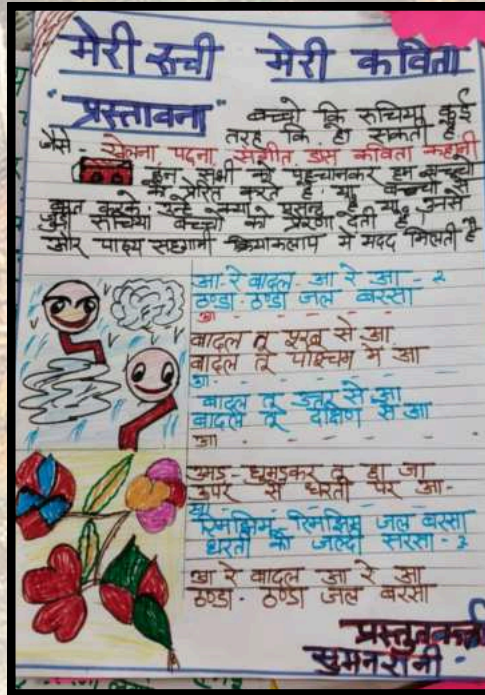 मेरी रूची मेरी कविता
"प्रस्तावना" बच्चो कि रूचिया कई
तरह कि हो सकती है
जैसे - खेलना, पढना, संगीत, डांस कविता कहानी
इन सभी को पहचानकर हम बच्चो
को प्रेरित करते है. या बच्चो से
करके उन्हे क्या पसन्द है या उनसे
जुडी रूचिया बच्चो को प्रेरणा देती है
और पाठ्य सहगामी क्रियाकलाप में मदद मिलती है
आ-रे बादल- आ रे आ - २
ठण्डा- ठण्डा जल बरसा
आ - - - - - -
बादल तू पूरब से आ
बादल तू पश्चिम से आ
आ - - - - - -
बादल तू उत्तर से आ
बादल तू दक्षिण से आ
आ - - - - - -
उमड- घुमडकर तू छा जा
ऊपर से धरती पर आ-
रिमझिम, रिमझिम जल बरसा
धरती को जल्दी सरसा - २
आ रे बादल आ रे आ
ठण्डा- ठण्डा जल बरसा
प्रस्तुतकर्ता
सुमन रानी -